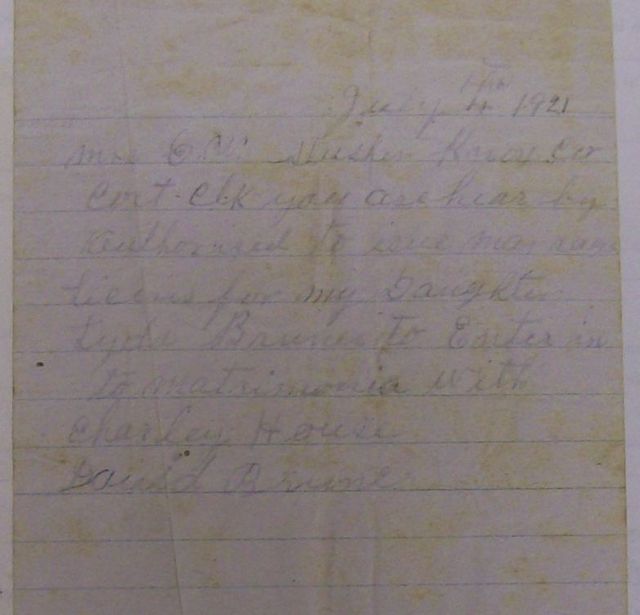 July 1921
Mrs Slusher Knox Co
Cort. Clk you are hear by
authorised to isue marriage
licens for my Daughter
Bruner to Enter in
to matrimonia with
Charley House
David Brune